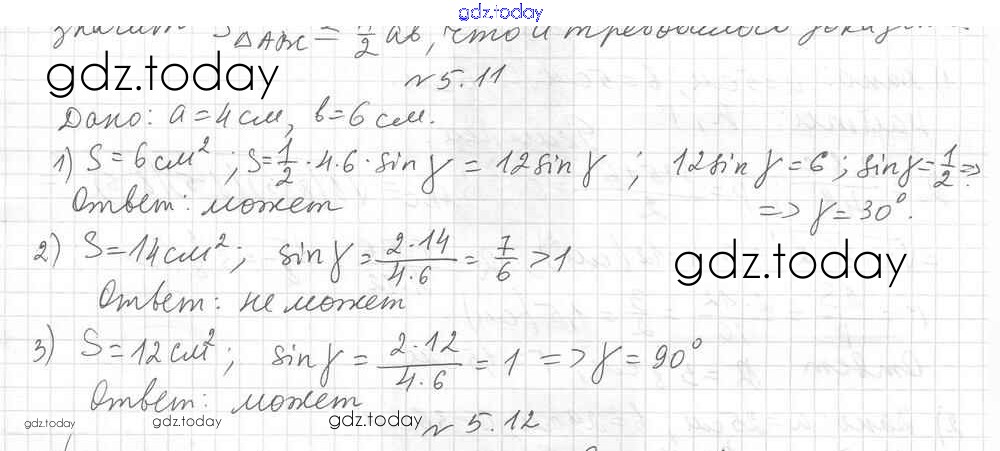 gdz.today
значит S△ABC = 1/2 ab, что и требовалось
gdz.today
№ 5.11
Дано: a = 4 см, b = 6 см.
1) S = 6 см²; S = 1/2 · 4 · 6 · sin γ = 12 sin γ; 12 sin γ = 6; sin γ = 1/2 =>
Ответ: может => γ = 30°.
2) S = 14 см²; sin γ = 2·14/4·6 = 7/6 > 1
gdz.today
Ответ: не может
3) S = 12 см²; sin γ = 2·12/4·6 = 1 => γ = 90°
Ответ: может
gdz.today gdz.today gdz.today
№ 5.12